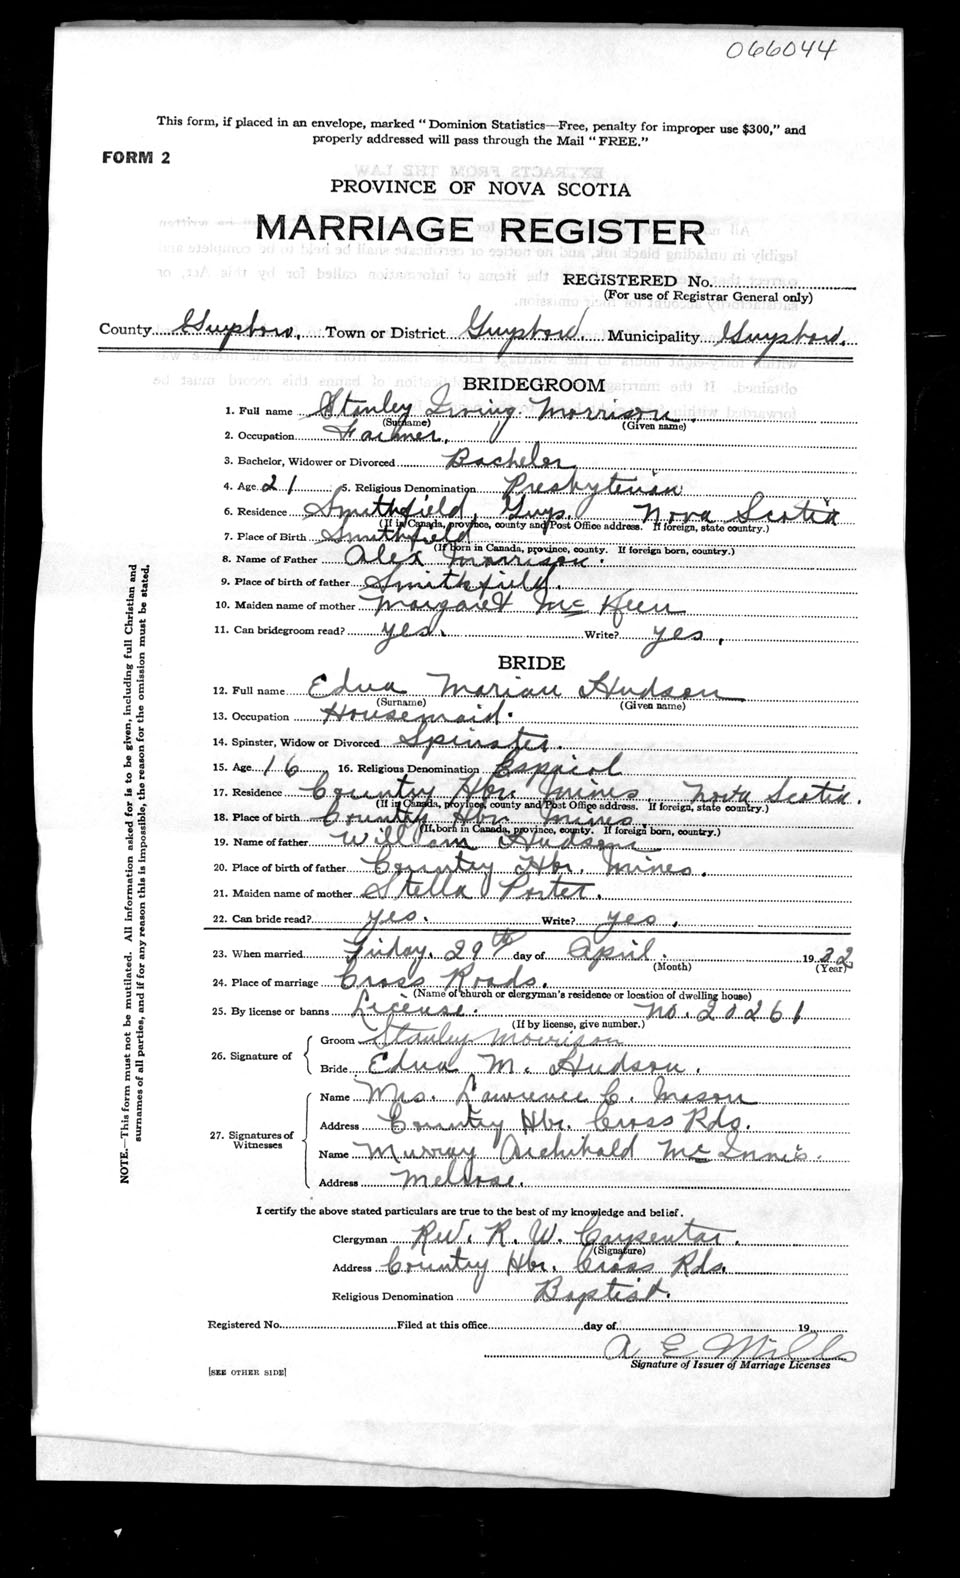 066044
This form, if placed in an envelope, marked "Dominion Statistics—Free, penalty for improper use $300," and
properly addressed will pass through the Mail "FREE."
FORM 2
PROVINCE OF NOVA SCOTIA
MARRIAGE REGISTER
REGISTERED No.
(For use of Registrar General only)
County Guysboro. Town or District Guysboro. Municipality Guysboro.
BRIDEGROOM
1. Full name Stanley Irving Morrison.
(Surname) (Given name)
2. Occupation Farmer.
3. Bachelor, Widower or Divorced Bachelor
4. Age 21 5. Religious Denomination Presbyterian
6. Residence Smithfield, Guys. Nova Scotia
(If in Canada, province, county and Post Office address. If foreign, state country.)
7. Place of Birth Smithfield
(If born in Canada, province, county. If foreign born, country.)
8. Name of Father Alex Morrison.
9. Place of birth of father Smithfield.
10. Maiden name of mother Margaret Mc Keen
11. Can bridegroom read? yes. Write? yes.
BRIDE
12. Full name Edna Marian Hudson
(Surname) (Given name)
13. Occupation Housemaid.
14. Spinster, Widow or Divorced Spinster.
15. Age 16 16. Religious Denomination
17. Residence Country Hbr. Mines, Nova Scotia.
(If in Canada, province, county and Post Office address. If foreign, state country.)
18. Place of birth Country Hbr Mines.
(If born in Canada, province, county. If foreign born, country.)
19. Name of father William Hudson
20. Place of birth of father Country Hbr. Mines.
21. Maiden name of mother Stella Porter.
22. Can bride read? yes. Write? yes.
23. When married Friday, 29th day of April. 1932
(Month) (Year)
24. Place of marriage Cross Roads.
(Name of church or clergyman's residence or location of dwelling house)
25. By license or banns License. No. 20261
(If by license, give number.)
26. Signature of
Groom Stanley Morrison
Bride Edna M. Hudson.
27. Signatures of Witnesses
Name Mrs. Lawrence C. Mason
Address Country Hbr. Cross Rds.
Name Murray Archibald McInnis.
Address Melrose.
I certify the above stated particulars are true to the best of my knowledge and belief.
Clergyman Rev. R. W. Carpenter.
(Signature)
Address Country Hbr. Cross Rds.
Religious Denomination Baptist.
Registered No. Filed at this office day of 19
A E Mills
Signature of Issuer of Marriage Licenses
[SEE OTHER SIDE]
NOTE.—This form must not be mutilated. All information asked for is to be given, including full Christian and
surnames of all parties, and if for any reason this is impossible, the reason for the omission must be stated.